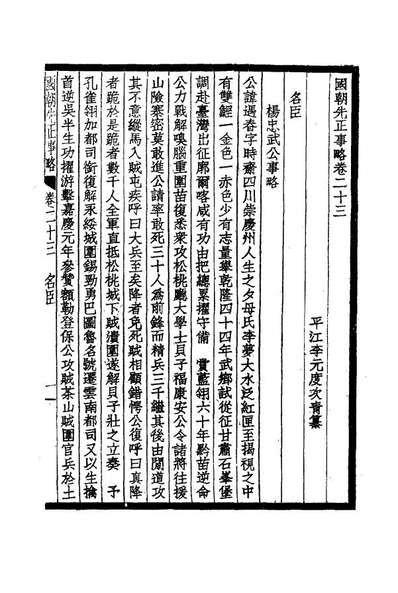 國朝先正事略卷二十三
平江李元度次青纂
名臣
楊忠武公事略
公諱遇春字時齋四川崇慶州人生之夕母氏李夢大水泛紅匣至揭視之中
有雙鯉一金色一赤色少有志量舉乾隆四十四年武鄉試從征甘肅石峯堡
調赴臺灣出征廓爾喀咸有功由把總累擢守備　賞藍翎六十年黔苗逆命
公力戰解嗅腦重圍苗復悉衆攻松桃廳大學士貝子福康安公令諸將往援
山險寨密莫敢進公請率敢死三十人為前鋒而精兵三千繼其後由間道攻
其不意縱馬入賊屯疾呼曰大兵至矣降者免死賊相顧錯愕公復呼曰真降
者跪於是跪者數千人全軍直抵松桃城下賊潰圍遂解貝子壯之立奏　予
孔雀翎加都司銜復解永綏城圍錫勁勇巴圖魯名號遷雲南都司又以生擒
首逆吳半生功擢游擊嘉慶元年參贊額勒登保公攻賊茶山賊圍官兵於土
國朝先正事略　卷二十三　名臣
一